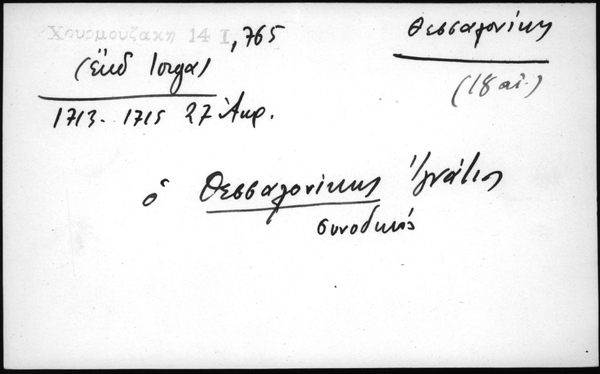 Χουρμουζάκη 14 I, 765
Θεσσαλονίκης
(ἔκδ Iorga)
(18 αἰ.)
1713-1715 27 Ἀπρ.
ὁ Θεσσαλονίκης Ἰγνάτιος
συνοδικός